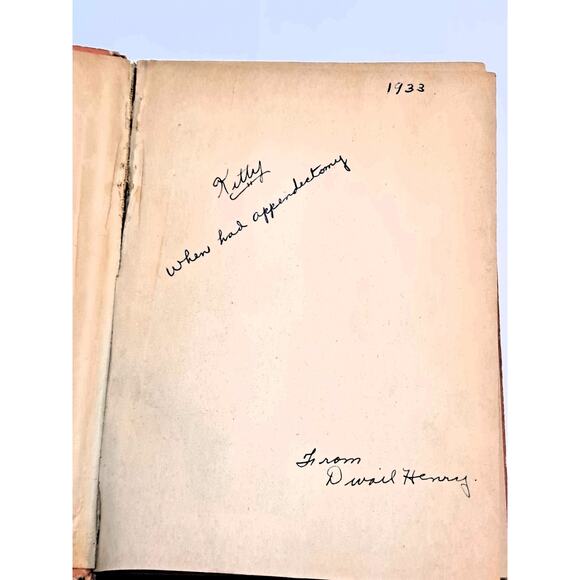 1933
Kitty
When had appendectomy
From
Dwail Henry.